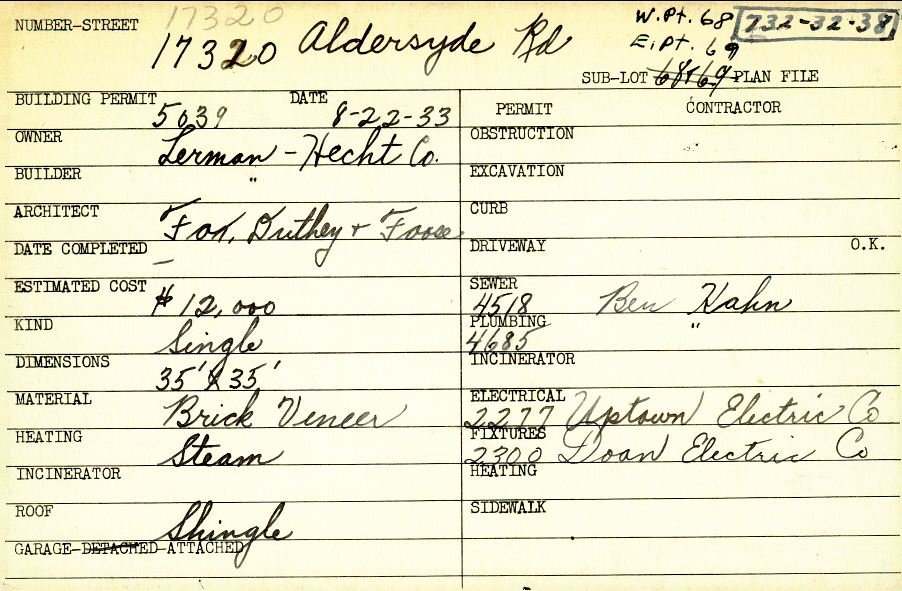 17320
NUMBER-STREET 17320 Aldersyde Rd
W.Pt. 68 732-32-38
E.pt. 69
SUB-LOT 68+69 PLAN FILE
BUILDING PERMIT 5039 DATE 8-22-33
OWNER Lerman-Hecht Co.
BUILDER "
ARCHITECT Fox, Duthey + Foose
DATE COMPLETED —
ESTIMATED COST $12,000
KIND Single
DIMENSIONS 35' X 35'
MATERIAL Brick Veneer
HEATING Steam
INCINERATOR
ROOF Shingle
GARAGE-DETACHED-ATTACHED
PERMIT CONTRACTOR
OBSTRUCTION
EXCAVATION
CURB
DRIVEWAY O.K.
SEWER 4518 Ben Kahn
PLUMBING 4685 "
INCINERATOR
ELECTRICAL 2277 Uptown Electric Co
FIXTURES 2300 Doan Electric Co
HEATING
SIDEWALK